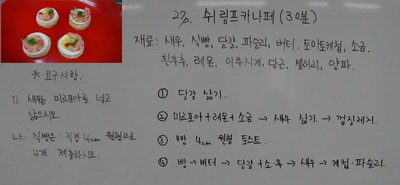 27. 쉬림프카나페 (30분)
재료: 새우, 식빵, 달걀, 파슬리, 버터, 토마토케첩, 소금,
흰후추, 레몬, 이쑤시개, 당근, 셀러리, 양파.
* 요구사항.
가. 새우는 미르포아를 넣고
삶으시오.
나. 식빵은 직경 4cm 원형으로
4개 제출하시오.
① 달걀 삶기.
② 미르포아+레몬+소금 → 새우 삶기 → 껍질제거.
③ 빵 4cm 원형 토스트.
④ 빵 → 버터 → 달걀+소.후 → 새우 → 케찹.파슬리.